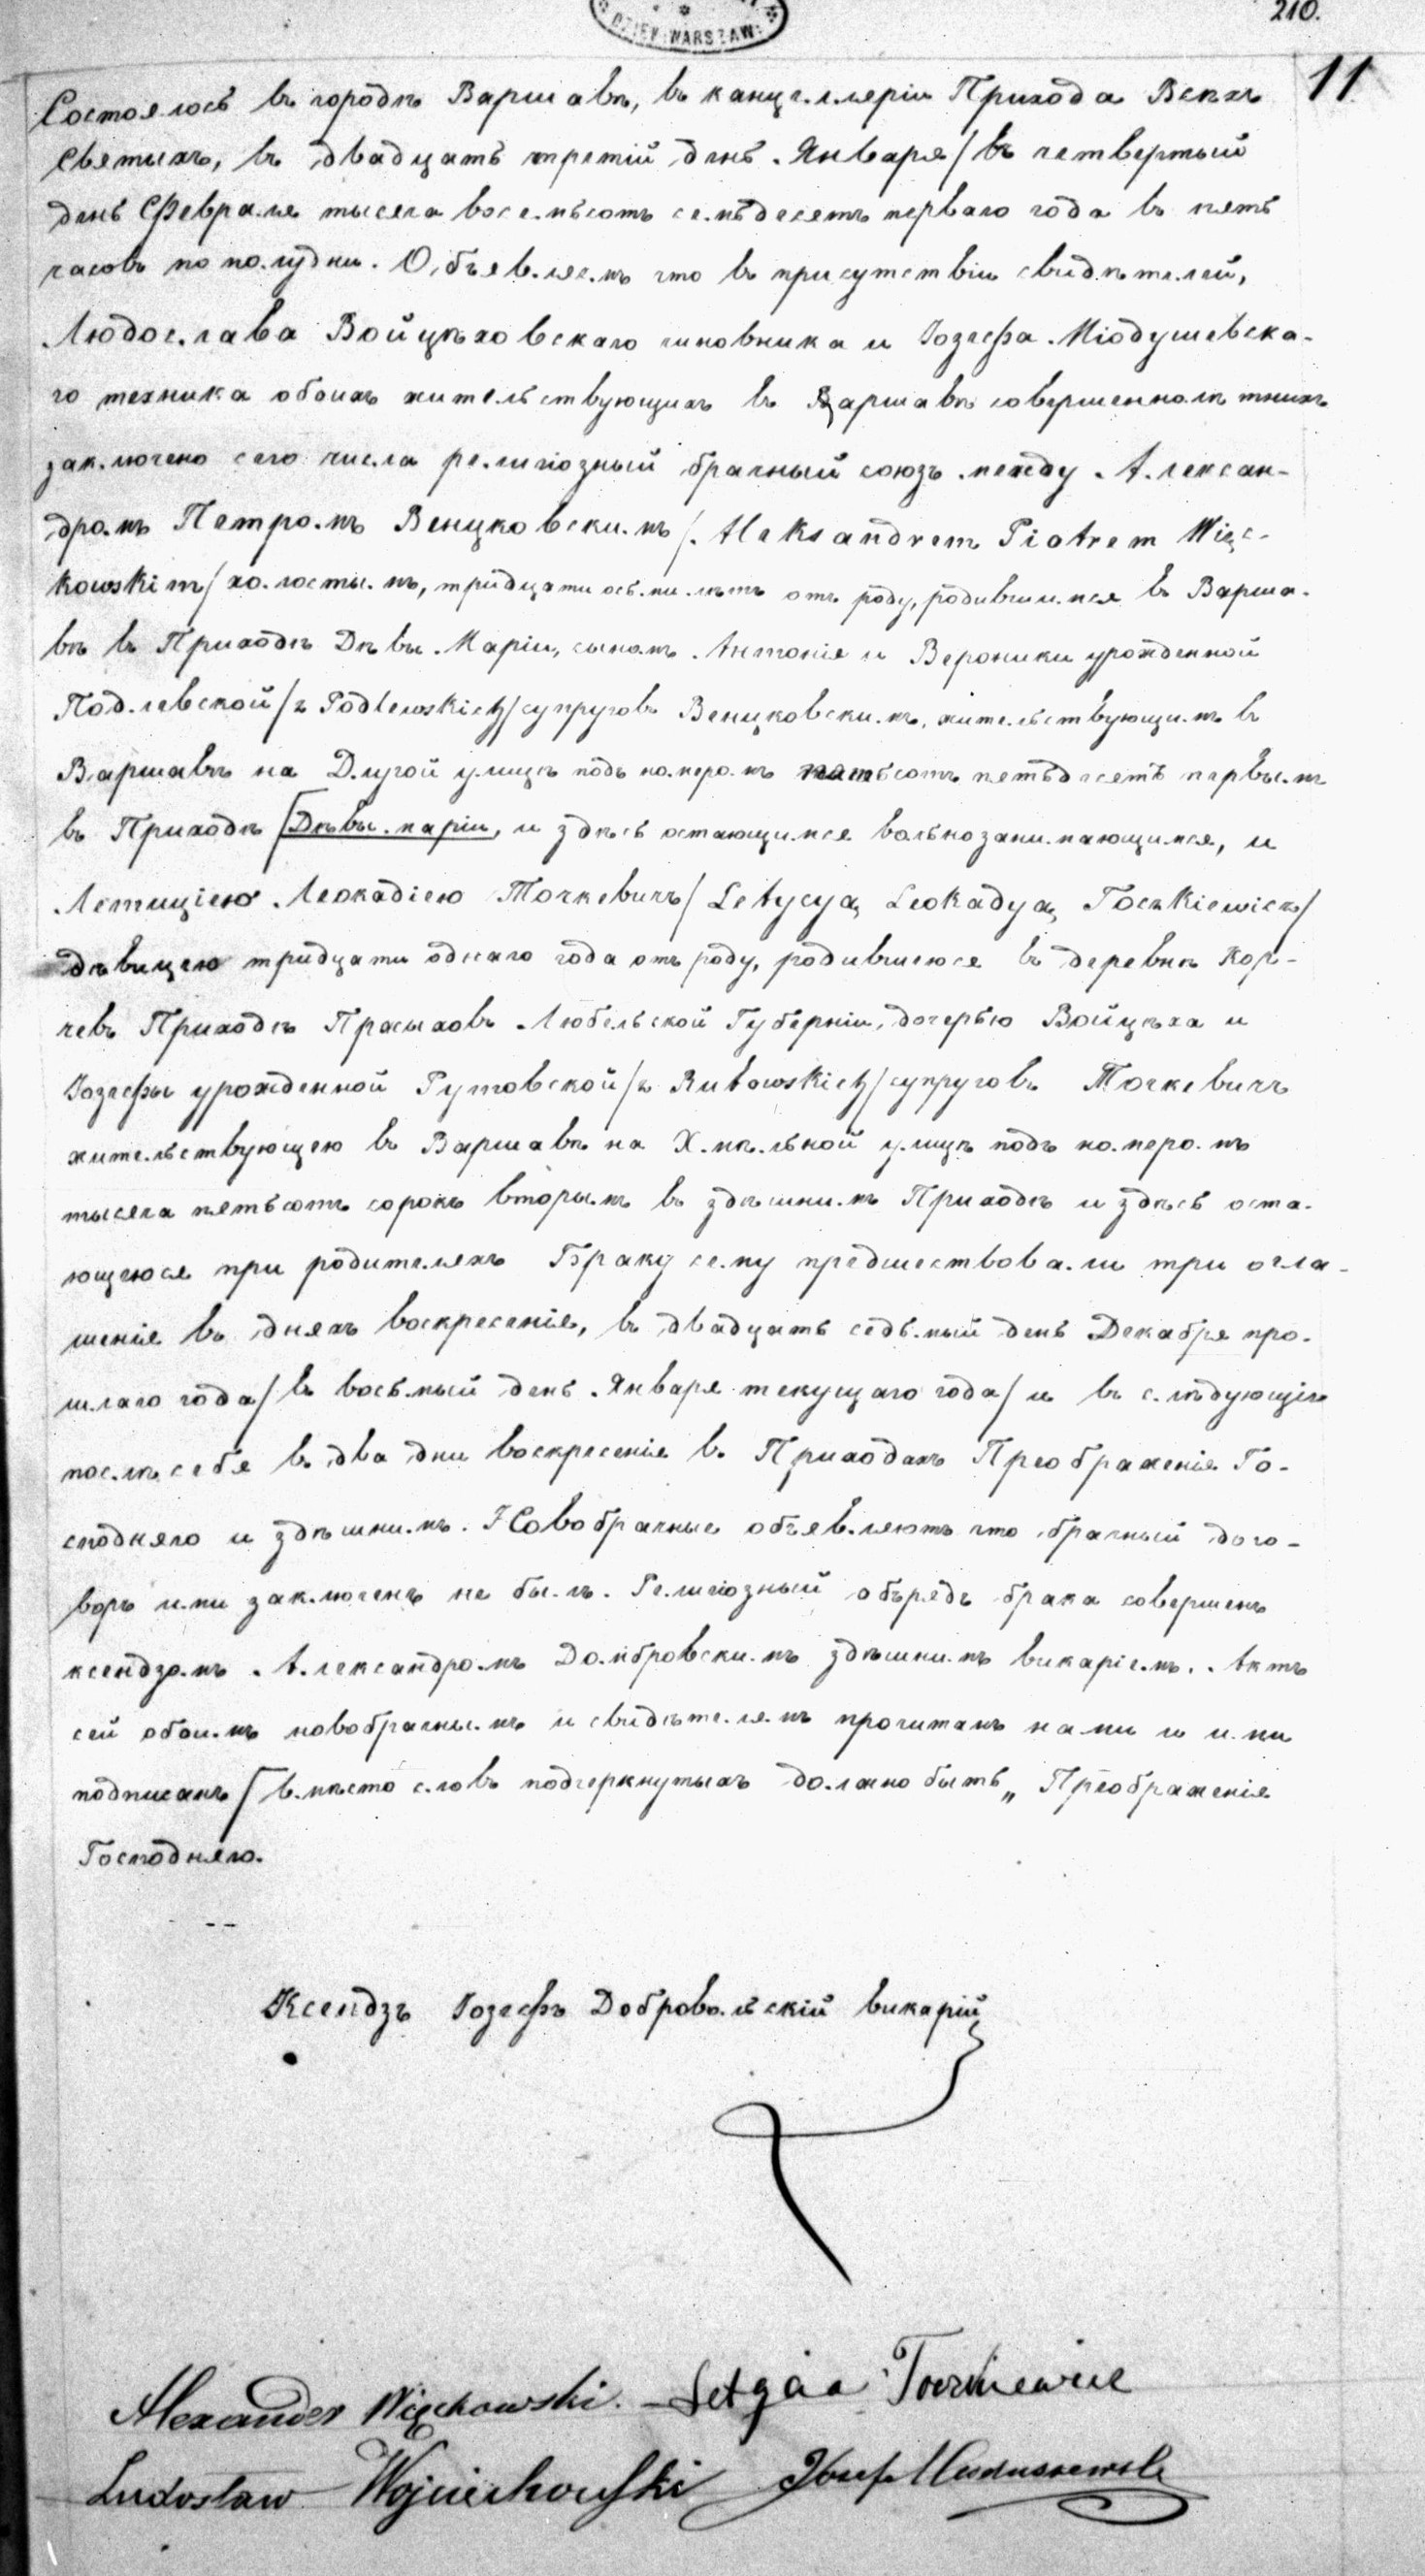 210.
DZIEN WARSZAW
11
Состоялось въ городѣ Варшавѣ, въ канцелляріи Прихода Всѣхъ
Святыхъ, въ двадцать третій день Января / въ четвертый
день Февраля тысяча восемьсотъ семьдесятъ перваго года въ пять
часовъ по полудни. Объявляемъ что въ присутствіи свидѣтелей,
Людослава Войцѣховскаго чиновника и Іозефа Міодушевска-
го техника обоихъ жительствующихъ въ Варшавѣ совершеннолѣтнихъ
заключено сего числа религіозный брачный союзъ между Алексан-
дромъ Петромъ Венцковскимъ / Aleksandrem Piotrem Więc-
kowskim / холостымъ, тридцати осьми лѣтъ отъ роду, родившимся въ Варша-
вѣ въ Приходѣ Дѣвы Маріи, сыномъ Антонія и Вероники урожденной
Подлевской / z Podlewskich / супруговъ Венцковскимъ, жительствующимъ въ
Варшавѣ на Длугой улицѣ подъ номеромъ пятьсотъ пятьдесятъ первымъ
въ Приходѣ [Дѣвы Маріи, и здѣсь остающимся вольнозанимающимся, и
Летиціею Леокадіею Точкевичъ / Letycyą Leokadyą Toczkiewicz /
дѣвицею тридцати однаго года отъ роду, родившеюся въ деревнѣ Кор-
чевъ Приходѣ Прасыховъ Любельской Губерніи, дочерью Войцѣха и
Іозефы урожденной Рутовской / z Rutowskich / супруговъ Точкевичъ
жительствующею въ Варшавѣ на Хмѣльной улицѣ подъ номеромъ
тысяча пятьсотъ сорокъ вторымъ въ здѣшнимъ Приходѣ и здѣсь оста-
ющеюся при родителяхъ Браку сему предшествовали три огла-
шенія въ дняхъ воскресенія, въ двадцать седьмый день Декабря про-
шлаго года / въ восьмый день Января текущаго года / и въ слѣдующіе
послѣ себя въ два дни воскресенія въ Приходахъ Преображенія Го-
сподняго и здѣшнимъ. Новобрачные объявляютъ что брачный дого-
воръ ими заключенъ не былъ. Религіозный обърядъ брака совершенъ
ксендзомъ Александромъ Домбровскимъ здѣшнимъ викаріемъ. Актъ
сей обоимъ новобрачнымъ и свидѣтелямъ прочитанъ нами и ими
подписанъ [вмѣсто словъ подчеркнутыхъ должно быть „ Преображенія
Господняго.
Ксендзъ Іозефъ Добровольскій викарій
Alexander Więckowski. Letycia Toczkiewicz
Ludosław Wojciechowski Józef Miduszewski